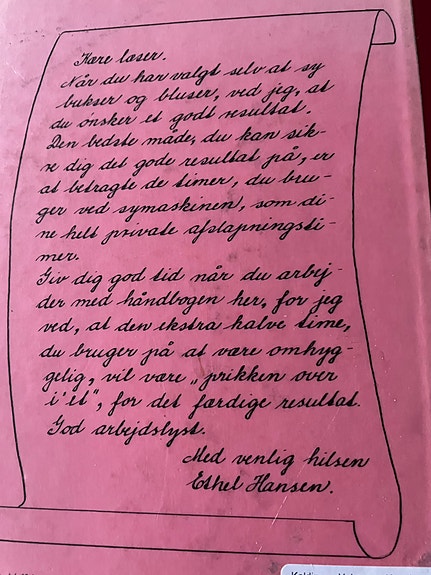 Kære læser.
Når du har valgt selv at sy
bukser og bluser, ved jeg, at
du ønsker et godt resultat.
Den bedste måde, du kan sik-
re dig det gode resultat på, er
at betragte de timer, du bru-
ger ved symaskinen, som di-
ne helt private afslapningsti-
mer.
Giv dig god tid når du arbej-
der med håndbogen her, for jeg
ved, at den ekstra halve time,
du bruger på at være omhyg-
gelig, vil være „prikken over
i'et", for det færdige resultat.
God arbejdslyst.
Med venlig hilsen
Ethel Hansen.